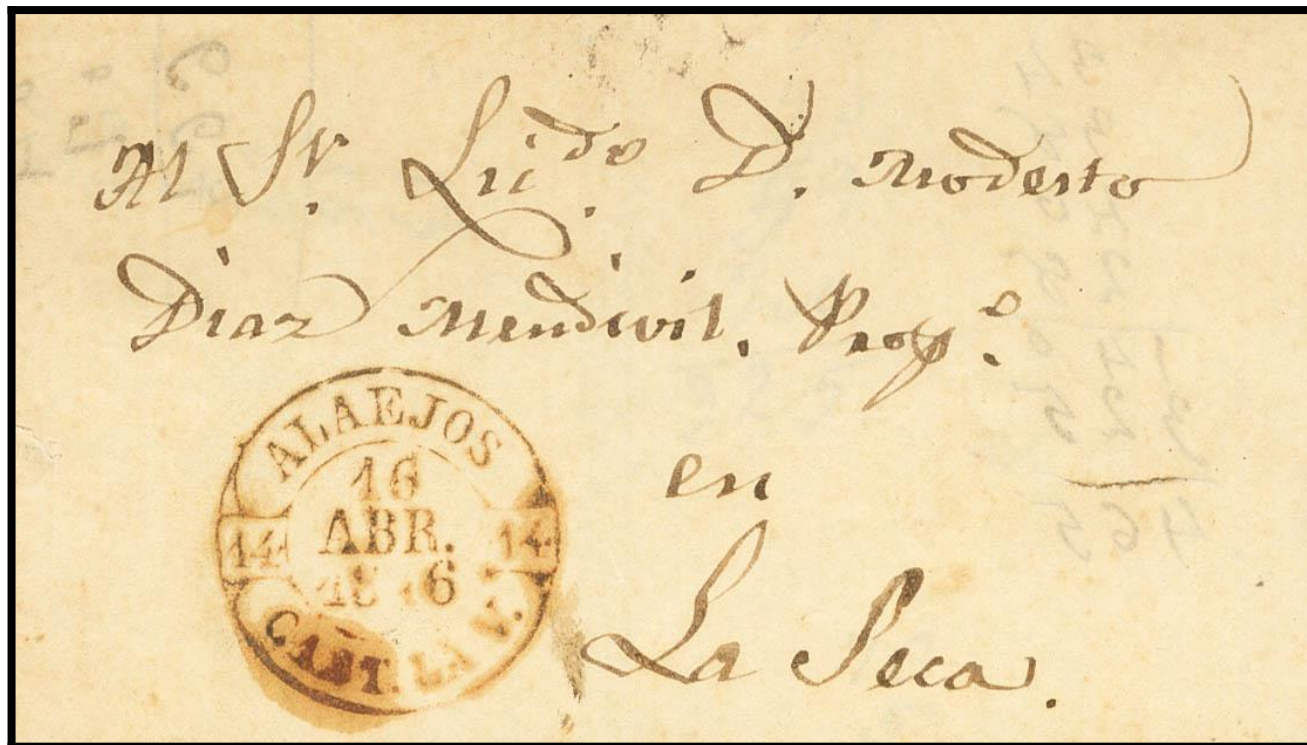 Al Sr. Licdo. D. Modesto
Diaz Mendivil. Propo.
en
La Seca.
ALAEJOS
16
ABR.
14 14
CAST. LA V.